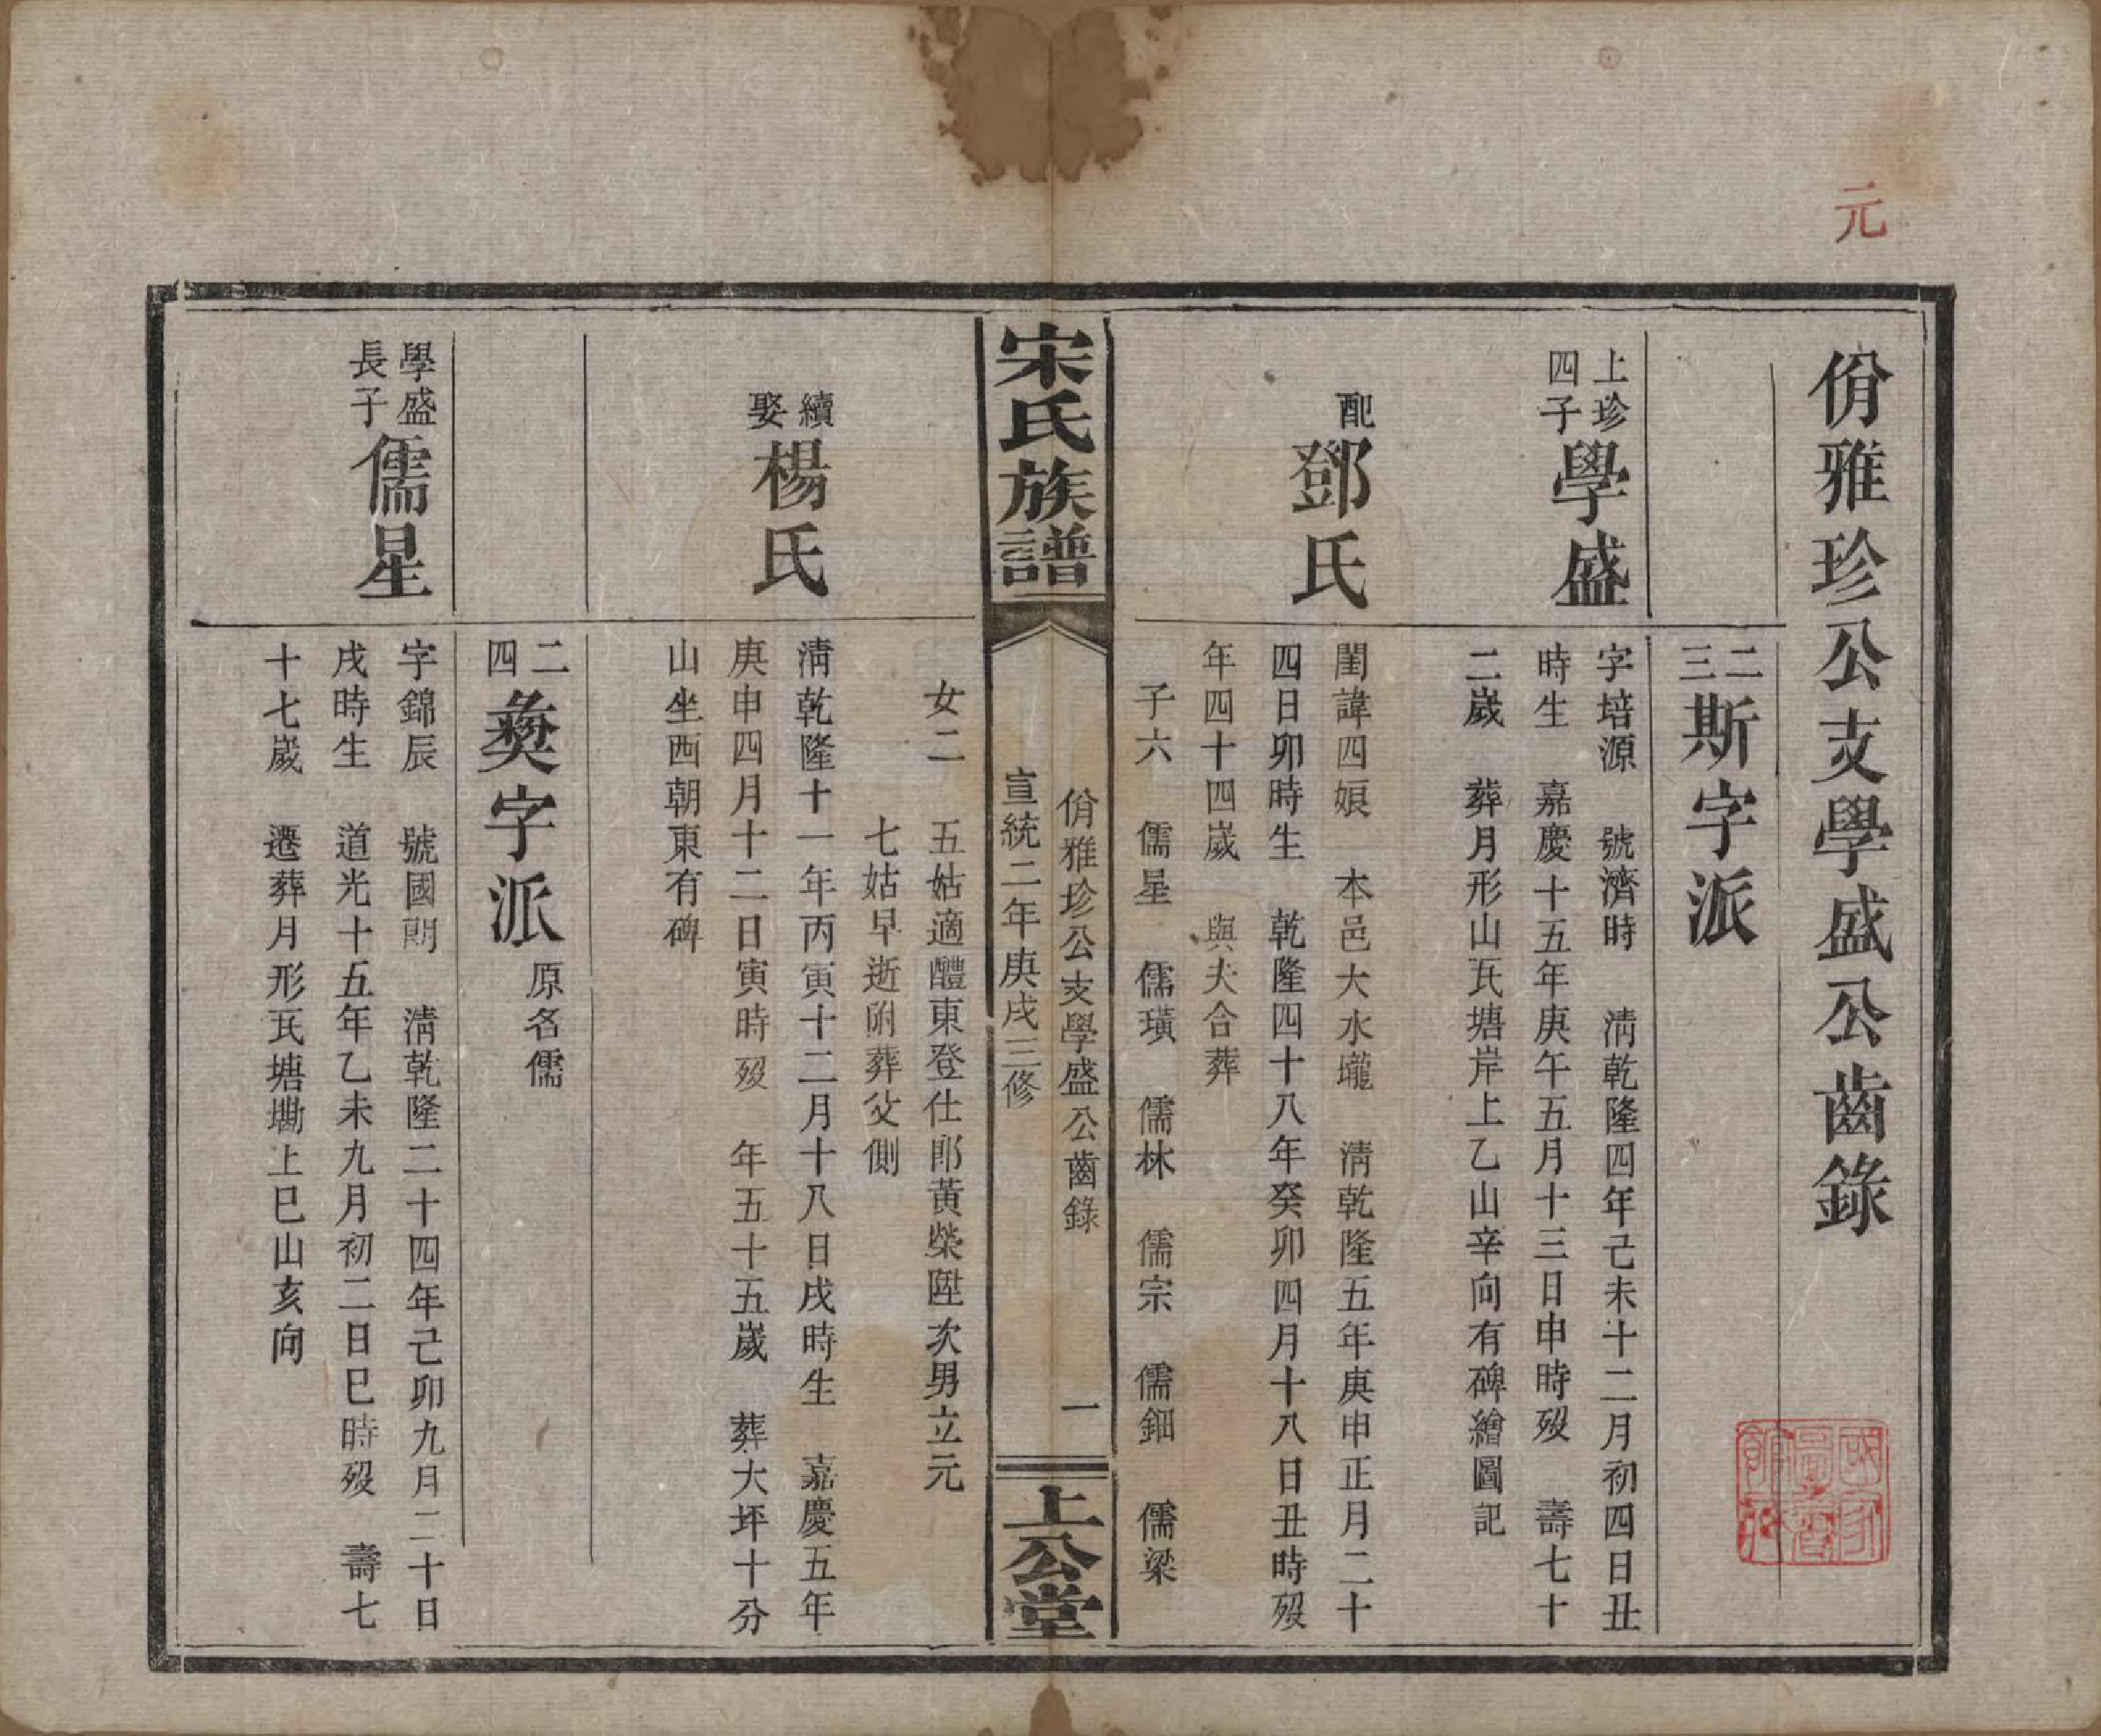 元
佾雅珍公支學盛公齒錄
二三斯字派
上珍四子學盛
字培源 號濟時 清乾隆四年己未十二月初四日丑
時生 嘉慶十五年庚午五月十三日申時歿 壽七十
二歲 葬月形山瓦塘岸上乙山辛向有碑繪圖記
配鄧氏
閨諱四娘 本邑大水壠 清乾隆五年庚申正月二十
四日卯時生 乾隆四十八年癸卯四月十八日丑時歿
年四十四歲 與夫合葬
子六 儒星 儒璜 儒林 儒宗 儒鈿 儒梁
宋氏族譜
佾雅珍公支學盛公齒錄 一
宣統二年庚戌三修
上公堂
女二 五姑適醴東登仕郎黃榮陞次男立元
七姑早逝附葬父側
續娶楊氏
清乾隆十一年丙寅十二月十八日戌時生 嘉慶五年
庚申四月十二日寅時歿 年五十五歲 葬大坪十分
山坐西朝東有碑
二四彝字派原名儒
學盛長子儒星
字錦辰 號國朗 清乾隆二十四年己卯九月二十日
戌時生 道光十五年乙未九月初二日巳時歿 壽七
十七歲 遷葬月形瓦塘墈上巳山亥向